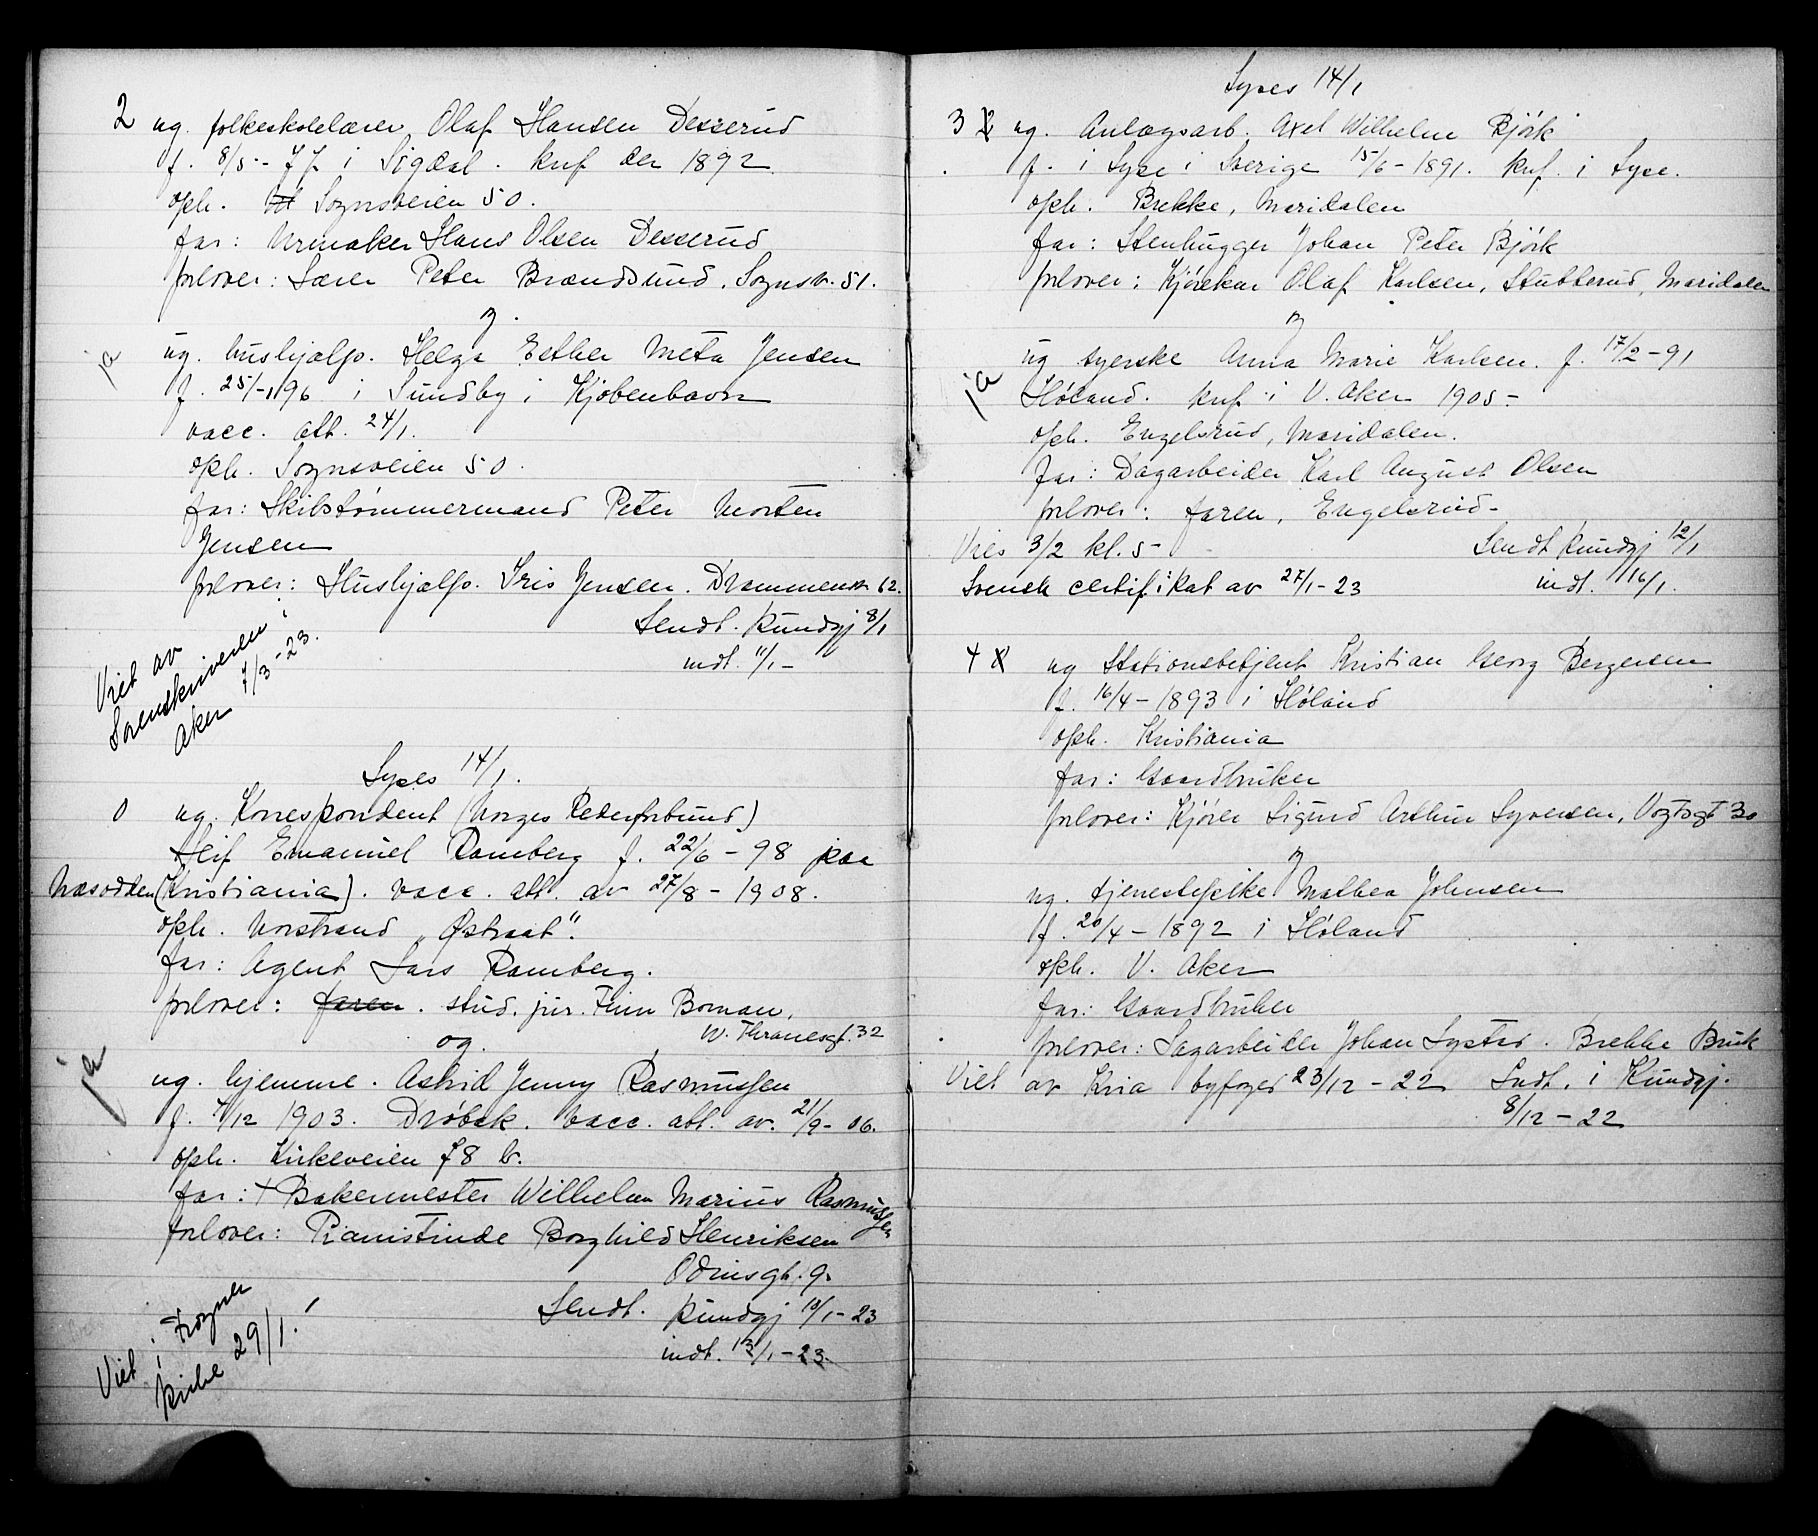 2 ug. folkeskolelærer Olaf Hansen Desserud
f. 8/5 - 77 i Sigdal. knf der 1892
oph. Sognsveien 50.
far: Urmaker Hans Olsen Desserud
forlover: Lærer Peter Brændsund, Sognsv. 51.
og
ja
ug. hushjælp. Helga Esther Meta Jensen
f. 25/-1 96 i Sundby i Kjøbenhavn
vacc. att. 24/1.
oph. Sognsveien 50.
far: Skibstømmermand Peter Morten
Jensen
forlover: Hushjælp. Iris Jensen. Drammensv 62.
Sendt. Kundgj 8/1
indt. 11/1 -
Viet av
Sorenskriveren i
Aker 7/3 - 23.
Lyses 14/1.
0 ug. Korrespondent (Norges Rederforbund)
Leif Emanuel Ramberg f. 22/6 - 98 paa
Næsodden (Kristiania). vacc. att. av 27/8 - 1908.
oph. Norstrand "Østraat".
far: Agent Lars Ramberg.
forlover: faren. stud. jur. Finn Boman,
W. Thranesgt. 32
og.
ja
ug. hjemme. Astrid Jenny Rasmussen
f. 7/12 1903. Drøbak. vacc. att. av. 21/9 - 06.
oph. Kirkeveien 78 b.
far: † Bakermester Wilhelm Marius Rasmussen
forlover: Pianistinde Borghild Henriksen
Odinsgt. 9.
Sendt. Kundgj 10/1 - 23
indt. 13/1 - 23.
Viet i Frogner
Kirke 29/1.
Lyses 14/1
3 ug. Anlægsarb. Axel Wilhelm Bjørk
f. i Lyse i Sverige 15/6 - 1891. knf. i Lyse.
oph. Brekke, Maridalen
far: Stenhugger Johan Peter Bjørk
forlover: Kjørekar Olaf Karlsen, Stubberud, Maridalen
og
ja
ug syerske Anna Marie Karlsen. f. 17/2 - 91
Høland. knf. i V. Aker 1905 -
oph. Engelsrud, Maridalen.
far: Dagarbeider Karl August Olsen
forlover: faren, Engelsrud -
Vies 3/2 kl. 5 - Sendt Kundgj 12/1
Svensk certifikat av 27/1 - 23 indt. 16/1.
4 ug Stationsbetjent Kristian Georg Bergersen
f. 16/4 - 1893 i Høland
oph. Kristiania
far: Gaardbruker
forlover: Kjører Sigurd Arthur Syversen, Vogtsgt 30
og
ug. tjenestepike Mathea Johnsen
f. 20/4 - 1892 i Høland
oph. V. Aker
far: Gaardbruker
forlover: Sagarbeider Johan Lysted. Brekke Bruk
Viet av Kria byfoged 23/12 - 22 Indt. i Kundgj.
8/12 - 22